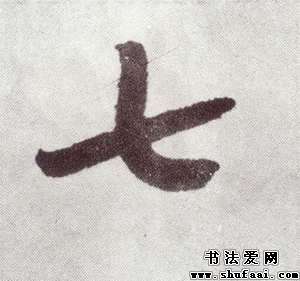 七
书法爱网
www.shufaai.com